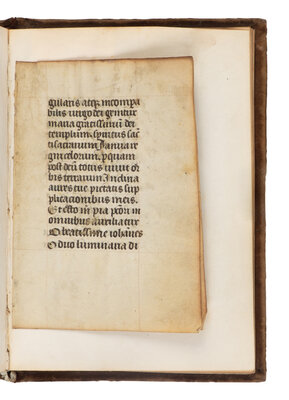 gularis atqꝫ incompa
bilis virgo dei genitrix
maria gratissimū dei
templum. spiritus sāc
ti sacrarium Ianua re
gni celorum. ꝑ quam
post deū totus uiuit or
bis terrarum. Inclina
aures tue pietatis sup
plicacionibus meis.
Et esto m̄ pia pctōri in
omnibus auxiliatrix
O beatissime iohānes
O duo luminaria di